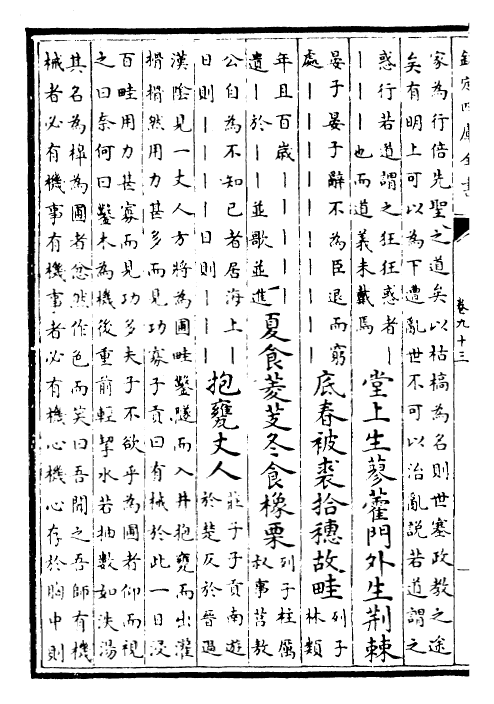 欽定四庫全書
卷九十三
家為行倍先聖之道矣以枯槁為名則世塞政教之途
矣有明上可以為下遭亂世不可以治亂說若道謂之
惑行若道謂之狂狂惑者｜
｜｜｜也而道義未戴焉
堂上生蓼藿門外生荆棘
晏子晏子辭不為臣退而窮
處｜｜｜｜｜｜｜｜｜｜
底春被裘拾穗故畦
列子
林類
年且百歲｜｜｜｜｜｜｜
遺｜｜於｜｜並歌並進
夏食菱芰冬食橡栗
列子柱厲
叔事莒敖
公自為不知已者居海上｜
日則｜｜｜｜日則｜｜｜｜
抱甕丈人
莊子子貢南遊
於楚反於晉過
漢陰見一丈人方將為圃畦鑿隧而入井抱甕而出灌
搰搰然用力甚多而見功寡子貢曰有械於此一日浸
百畦用力甚寡而見功多夫子不欲乎為圃者仰而視
之曰奈何曰鑿木為機後重前輕挈水若抽數如泆湯
其名為槹為圃者忿然作色而笑曰吾聞之吾師有機
械者必有機事有機事者必有機心機心存於胸中則